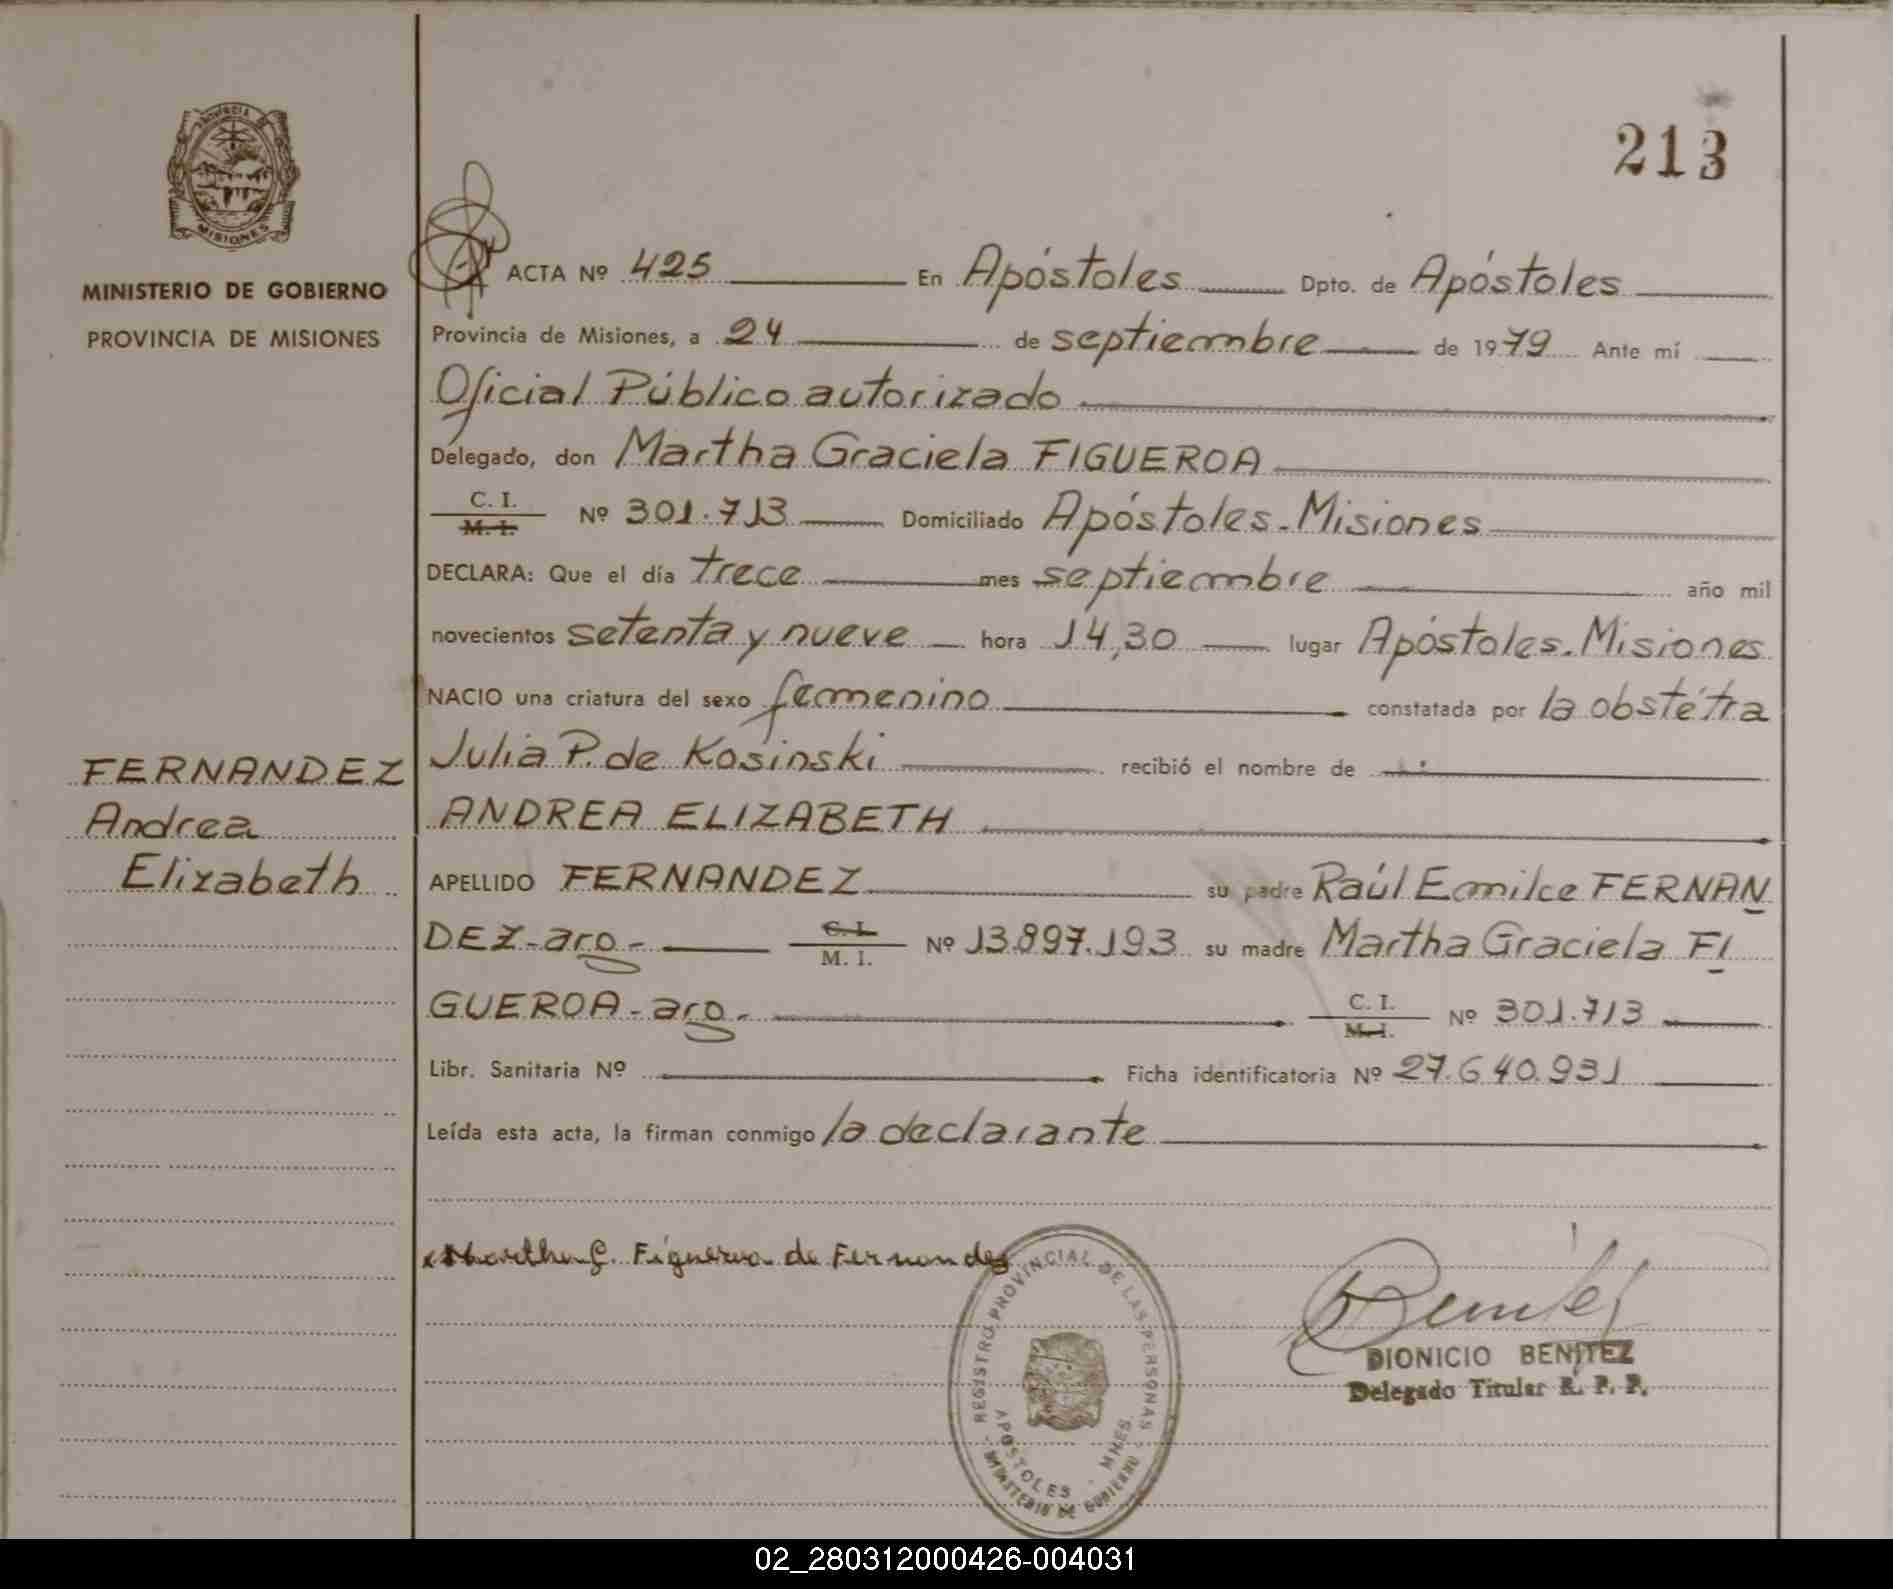 213
PROVINCIA DE
MISIONES
MINISTERIO DE GOBIERNO
PROVINCIA DE MISIONES
ACTA Nº 425 En Apóstoles Dpto. de Apóstoles
Provincia de Misiones, a 24 de septiembre de 1979 Ante mí
Oficial Público autorizado
Delegado, don Martha Graciela FIGUEROA
C. I.
M. I. Nº 301.713 Domiciliado Apóstoles-Misiones
DECLARA: Que el día trece mes septiembre año mil
novecientos setenta y nueve hora 14,30 lugar Apóstoles-Misiones
NACIO una criatura del sexo femenino constatada por la obstétra
Julia P. de Kosinski recibió el nombre de
ANDREA ELIZABETH
FERNANDEZ
Andrea
Elizabeth
APELLIDO FERNANDEZ su padre Raúl Emilce FERNAN
DEZ-arg- C. I.
M. I. Nº 13.897.193 su madre Martha Graciela FI
GUEROA-arg- C. I.
M. I. Nº 301.713
Libr. Sanitaria Nº Ficha identificatoria Nº 27.640.931
Leída esta acta, la firman conmigo la declarante
Martha G. Figueroa de Fernandez
REGISTRO PROVINCIAL DE LAS PERSONAS
APOSTOLES - MNES.
MINISTERIO DE GOBIERNO
Benitez
DIONICIO BENITEZ
Delegado Titular R. P. P.
02_280312000426-004031